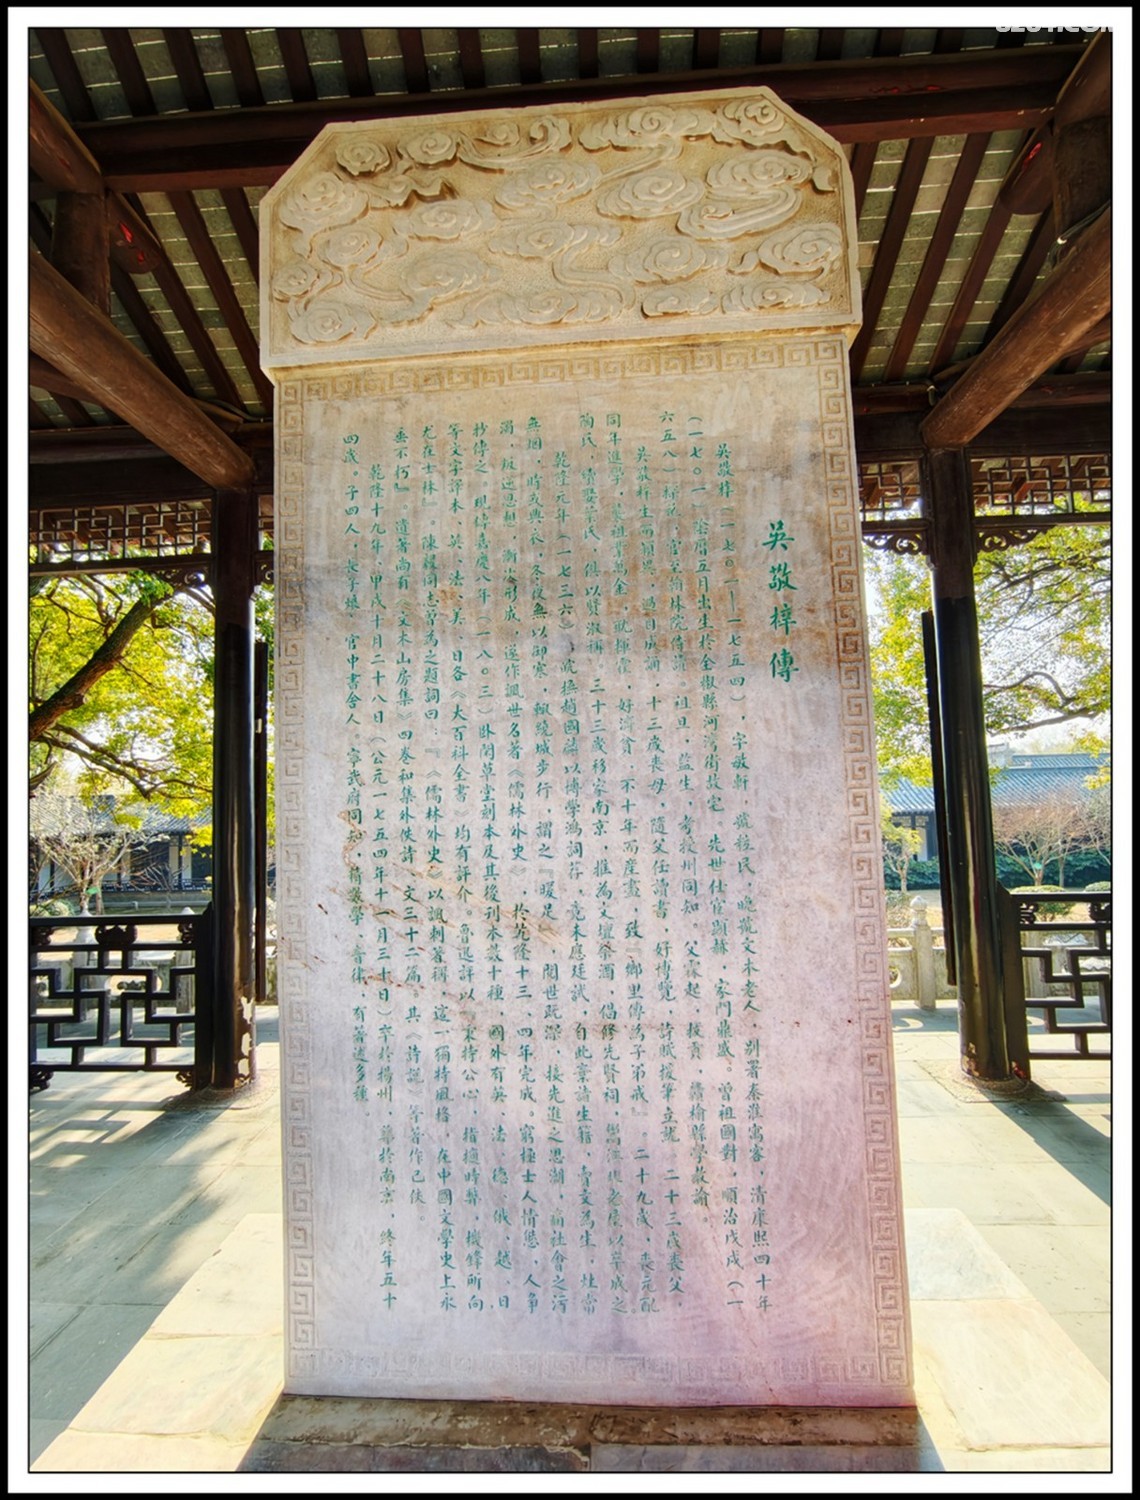 吳敬梓傳
吳敬梓(一七〇一——一七五四),字敏軒,號粒民,晚號文木老人,別署秦淮寓客,清康熙四十年
(一七〇一)陰曆五月出生於全椒縣河灣街故宅。先世仕宦顯赫,家門鼎盛。曾祖國對,順治戊戌(一
六五八)探花,官至翰林院侍讀。祖旦,監生,考授州同知。父霖起,拔貢,贛榆縣學教諭。
吳敬梓生而穎異,過目成誦,十三歲喪母,隨父任讀書,好博覽,詩賦援筆立就。二十三歲喪父,
同年進學,襲祖業萬金,就揮霍,好濟貧,不十年而產盡,致『鄉里傳為子弟戒』。二十九歲,喪元配
陶氏,續娶葉氏,俱以賢淑稱。三十三歲移家南京,推為文壇祭酒,倡修先賢祠,以卒成之。
乾隆元年(一七三六),皖撫趙國麟以博學鴻詞荐,竟未應廷試,自此棄諸生籍,賣文為生,灶常
無烟,時或典衣,冬夜無以御寒,輒繞城步行,謂之『暖足』,閱世既深,接先進之思潮,痛社會之污
濁,叛逆思想,漸次形成,遂作諷世名著《儒林外史》,於乾隆十三、四年完成。窮極士人情態,人爭
抄傳之。現傳嘉慶八年(一八〇三)卧閑草堂刻本及其後刊本數十種,國外有英、法、德、俄、越、日
等文字譯本、英、法、美、日各《大百科全書》均有評介。魯迅評以『秉持公心,指擿時弊,機鋒所向,
尤在士林』。陳毅同志曾為之題詞曰:『《儒林外史》以諷刺著稱,這一獨特風格,在中國文學史上永
垂不朽』。遺著尚有《文木山房集》四卷和集外佚詩、文三十二篇。其《詩說》等著作已佚。
乾隆十九年、甲戌十月二十八日(公元一七五四年十一月三十日)卒於揚州,葬於南京,終年五十
四歲。子四人,長子烺、官中書舍人。寧武府同知,精算學、音律,有著述多種。